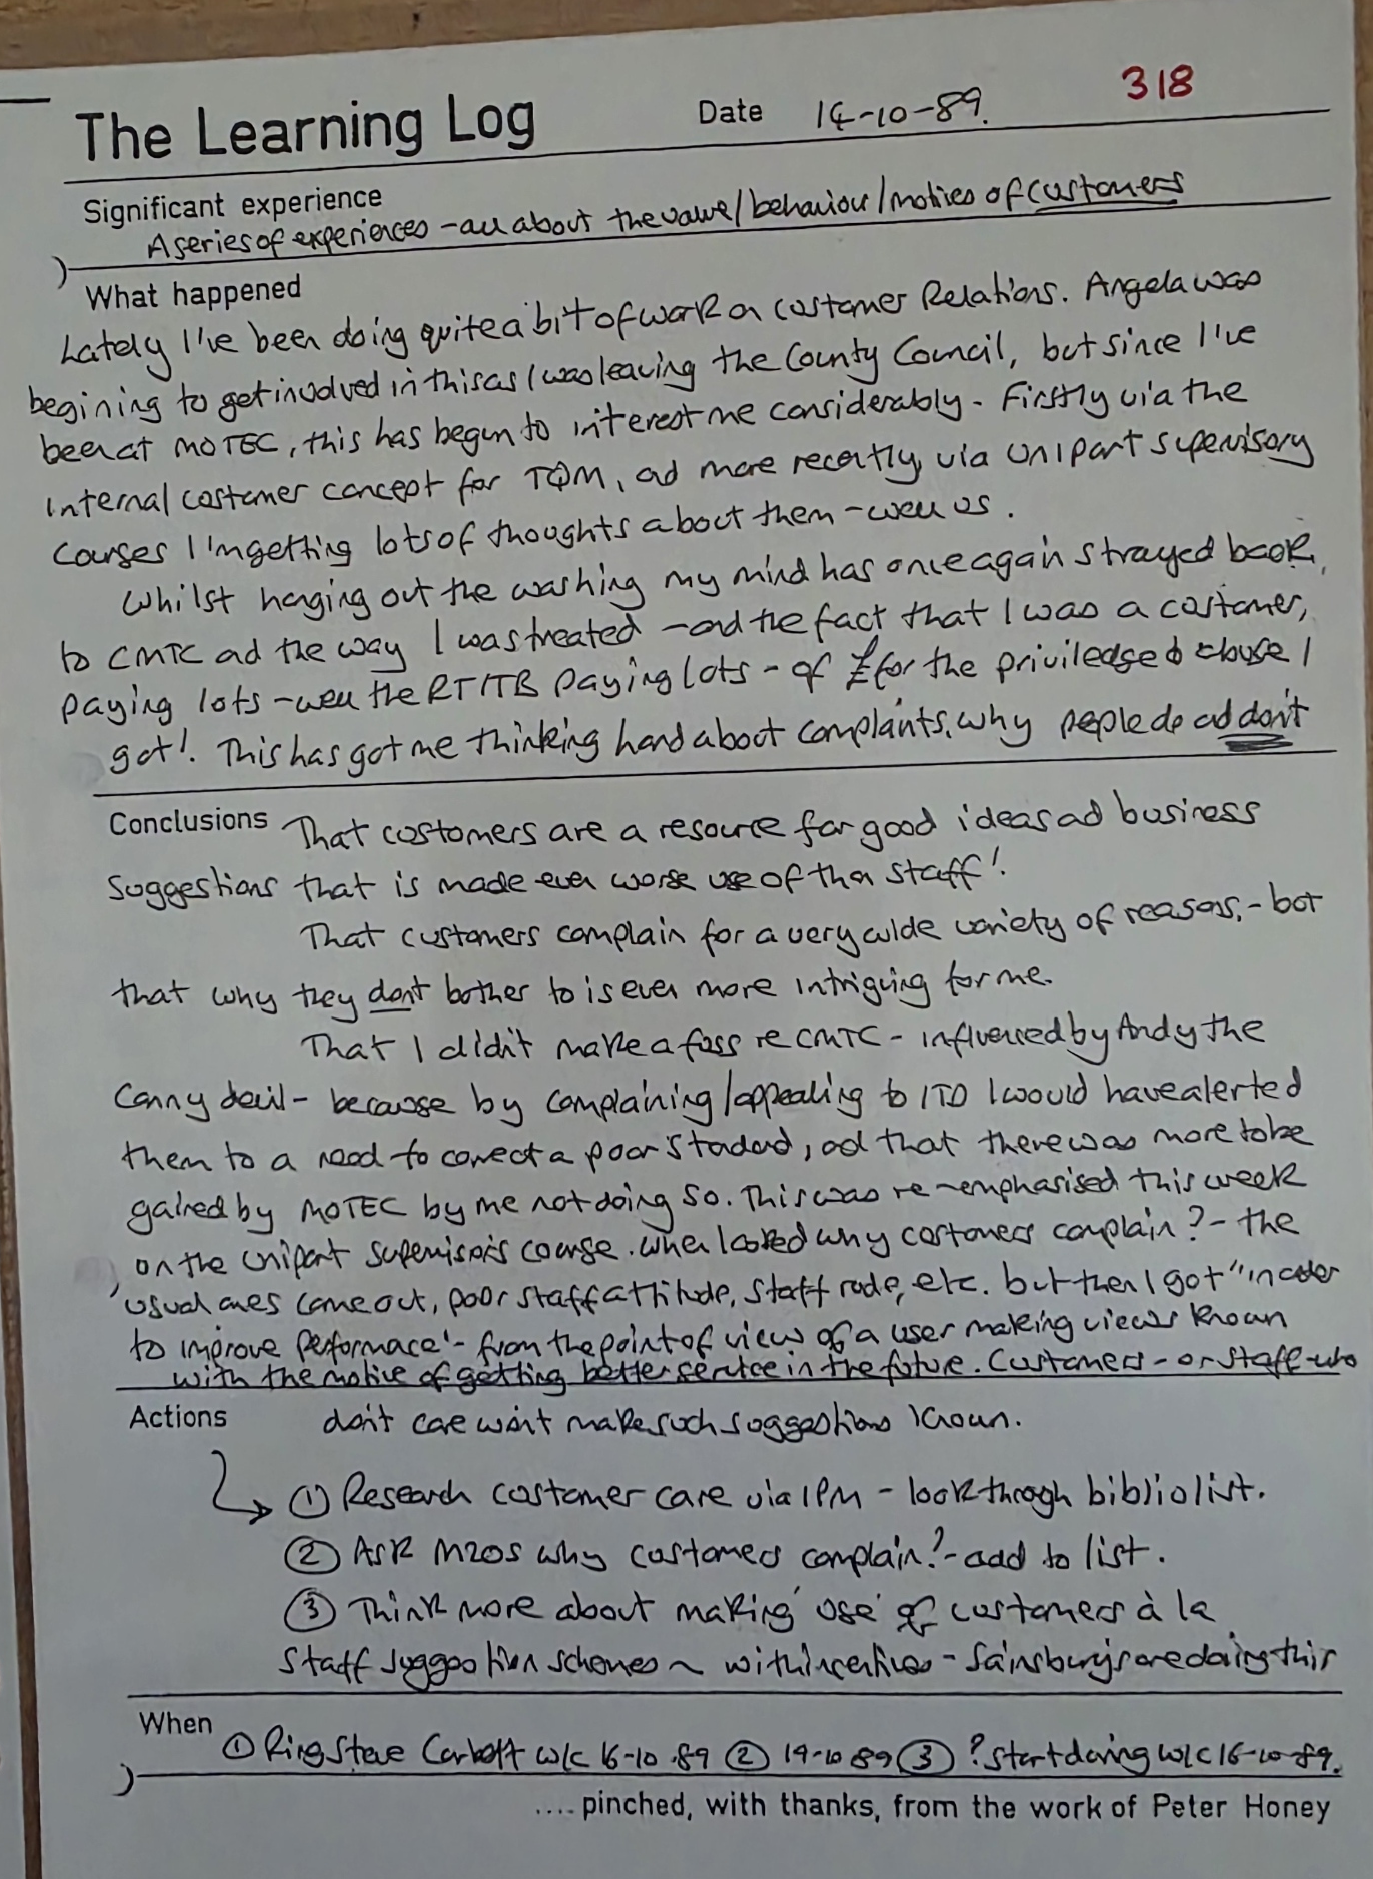 318
The Learning Log Date 14-10-89.
Significant experience
A series of experiences - all about the value/behaviour/motives of customers
What happened
Lately I've been doing quite a bit of work on customer Relations. Angela was
begining to get involved in this as I was leaving the County Council, but since I've
been at MOTEC, this has begun to interest me considerably - Firstly via the
internal customer concept for TQM, and more recently, via Unipart supervisory
courses I'm getting lots of thoughts about them - well us.
Whilst hanging out the washing my mind has once again strayed back,
to CMTC and the way I was treated - and the fact that I was a customer,
paying lots - well the RTITB paying lots - of £ for the priviledge & abuse I
got!. This has got me thinking hard about complaints, why people do and don't
Conclusions That customers are a resource for good ideas and business
suggestions that is made even worse use of than staff!
That customers complain for a very wide variety of reasons, - but
that why they dont bother to is even more intriguing for me.
That I didn't make a fuss re CMTC - influenced by Andy the
Canny devil - because by complaining/appealing to ITD I would have alerted
them to a need to correct a poor standard, and that there was more to be
gained by MOTEC by me not doing so. This was re-emphasised this week
on the Unipart Supervisors course. When I asked why customers complain? - the
usual ones came out, poor staff attitude, staff rude, etc. but then I got "in order
to improve performance' - from the point of view of a user making views known
with the motive of getting better service in the future. Customers - or staff - who
Actions don't care won't make such suggestions known.
① Research customer care via IPM - look through biblio list.
② Ask M20s why customers complain? - add to list.
③ Think more about making 'use' of customers à la
Staff suggestion schemes ~ with incentives - Sainsbury's are doing this
When ① Ring Steve Corbett w/c 16-10-89 ② 19-10-89 ③ ? start during w/c 16-10-89.
.... pinched, with thanks, from the work of Peter Honey